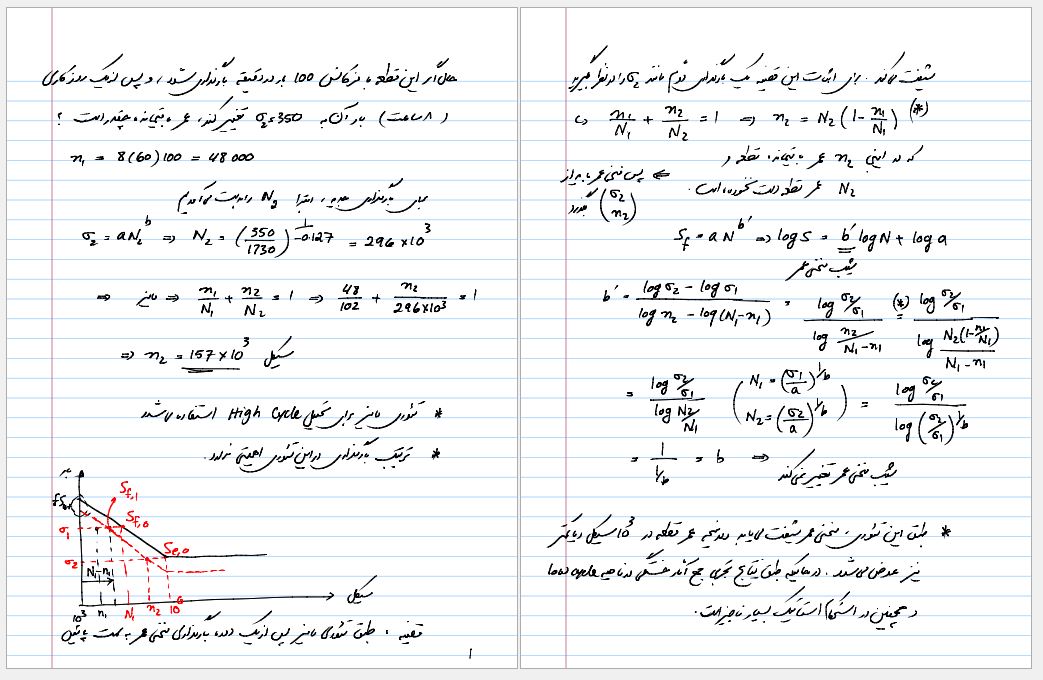 حال اگر این قطعه با فرکانس 100 بار در دقیقه بارگذاری شود، و پس از یک روز کاری
(8 ساعت) بار آن به σ₂=350 تغییر کند، عمر باقیمانده چقدر است ؟
n₁ = 8(60)100 = 48000
برای بارگذاری جدید، ابتدا N₂ را بدست می‌آوریم
σ₂ = aN₂^b ⇒ N₂ = (350/1730)^(1/-0.127) = 296×10³
⇒ ماینر ⇒ n₁/N₁ + n₂/N₂ = 1 ⇒ 48/102 + n₂/296×10³ = 1
⇒ n₂ = 157×10³ سیکل
* تئوری ماینر برای تحلیل High Cycle استفاده می‌شود
* ترتیب بارگذاری در این تئوری اهمیتی ندارد.
بار
S_f,1
S_f,0
σ₁
S_e,0
σ₂
N₁-n₁
10³ n₁ N₁ n₂ 10⁶
سیکل
قضیه : طبق تئوری ماینر پس از یک دوره بارگذاری منحنی عمر به سمت پائین
1
شیفت می‌کند. برای اثبات این قضیه یک بارگذاری دوم مانند σ₂ را در نظر بگیرید
n₁/N₁ + n₂/N₂ = 1 ⇒ n₂ = N₂(1-n₁/N₁) (*)
که در اینجا n₂ عمر باقیمانده قطعه و
N₂ عمر قطعه دست نخورده است.
⇐ پس منحنی عمر باید از (σ₂ n₂) بگذرد
S_f = aN^b′ ⇒ log S = b′ log N + log a
شیب منحنی عمر
b′ = (log σ₂ - log σ₁)/(log n₂ - log(N₁-n₁)) = (log σ₂/σ₁)/(log n₂/(N₁-n₁)) =(*) (log σ₂/σ₁)/(log N₂(1-n₁/N₁)/(N₁-n₁))
= (log σ₂/σ₁)/(log N₂/N₁) (N₁ = (σ₁/a)^(1/b) N₂ = (σ₂/a)^(1/b)) = (log σ₂/σ₁)/(log (σ₂/σ₁)^(1/b))
= 1/(1/b) = b ⇒ شیب منحنی عمر تغییر نمی‌کند
* طبق این تئوری، منحنی عمر شیفت می‌یابد و در نتیجه عمر قطعه در 10³ سیکل و یا کمتر
نیز عوض می‌شود. در حالیکه طبق نتایج تجربی جمع آثار خستگی در ناحیه low cycle
و همچنین در استحکام استاتیک بسیار ناچیز است.